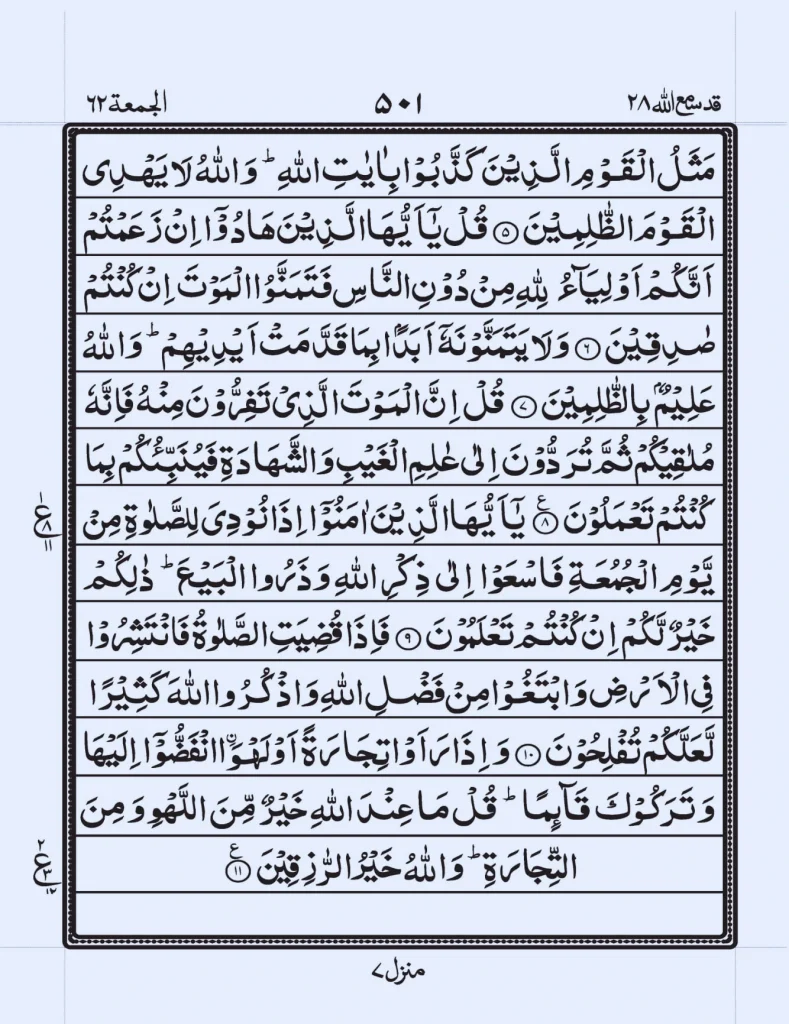 قد سمع الله ٢٨
٥٠١
الجمعة ٦٢
مَثَلُ الْقَوْمِ الَّذِيْنَ كَذَّبُوْا بِاٰيٰتِ اللّٰهِ ؕ وَاللّٰهُ لَا يَهْدِى
الْقَوْمَ الظّٰلِمِيْنَ ۝٥ قُلْ يٰۤاَيُّهَا الَّذِيْنَ هَادُوْۤا اِنْ زَعَمْتُمْ
اَنَّكُمْ اَوْلِيَآءُ لِلّٰهِ مِنْ دُوْنِ النَّاسِ فَتَمَنَّوُا الْمَوْتَ اِنْ كُنْتُمْ
صٰدِقِيْنَ ۝٦ وَلَا يَتَمَنَّوْنَهٗۤ اَبَدًۢا بِمَا قَدَّمَتْ اَيْدِيْهِمْ ؕ وَاللّٰهُ
عَلِيْمٌۢ بِالظّٰلِمِيْنَ ۝٧ قُلْ اِنَّ الْمَوْتَ الَّذِىْ تَفِرُّوْنَ مِنْهُ فَاِنَّهٗ
مُلٰقِيْكُمْ ثُمَّ تُرَدُّوْنَ اِلٰى عٰلِمِ الْغَيْبِ وَالشَّهَادَةِ فَيُنَبِّئُكُمْ بِمَا
كُنْتُمْ تَعْمَلُوْنَ ۝٨ ع يٰۤاَيُّهَا الَّذِيْنَ اٰمَنُوْۤا اِذَا نُوْدِىَ لِلصَّلٰوةِ مِنْ
١ ع ٨ ١١
يَّوْمِ الْجُمُعَةِ فَاسْعَوْا اِلٰى ذِكْرِ اللّٰهِ وَذَرُوا الْبَيْعَ ؕ ذٰلِكُمْ
خَيْرٌ لَّكُمْ اِنْ كُنْتُمْ تَعْلَمُوْنَ ۝٩ فَاِذَا قُضِيَتِ الصَّلٰوةُ فَانْتَشِرُوْا
فِى الْاَرْضِ وَابْتَغُوْا مِنْ فَضْلِ اللّٰهِ وَاذْكُرُوا اللّٰهَ كَثِيْرًا
لَّعَلَّكُمْ تُفْلِحُوْنَ ۝١٠ وَاِذَا رَاَوْا تِجَارَةً اَوْ لَهْوَا۟ ۨانْفَضُّوْۤا اِلَيْهَا
وَتَرَكُوْكَ قَآئِمًا ؕ قُلْ مَا عِنْدَ اللّٰهِ خَيْرٌ مِّنَ اللَّهْوِ وَمِنَ
التِّجَارَةِ ؕ وَاللّٰهُ خَيْرُ الرّٰزِقِيْنَ ۝١١ ع
٢ ع ٣ ١٢
منزل ٧